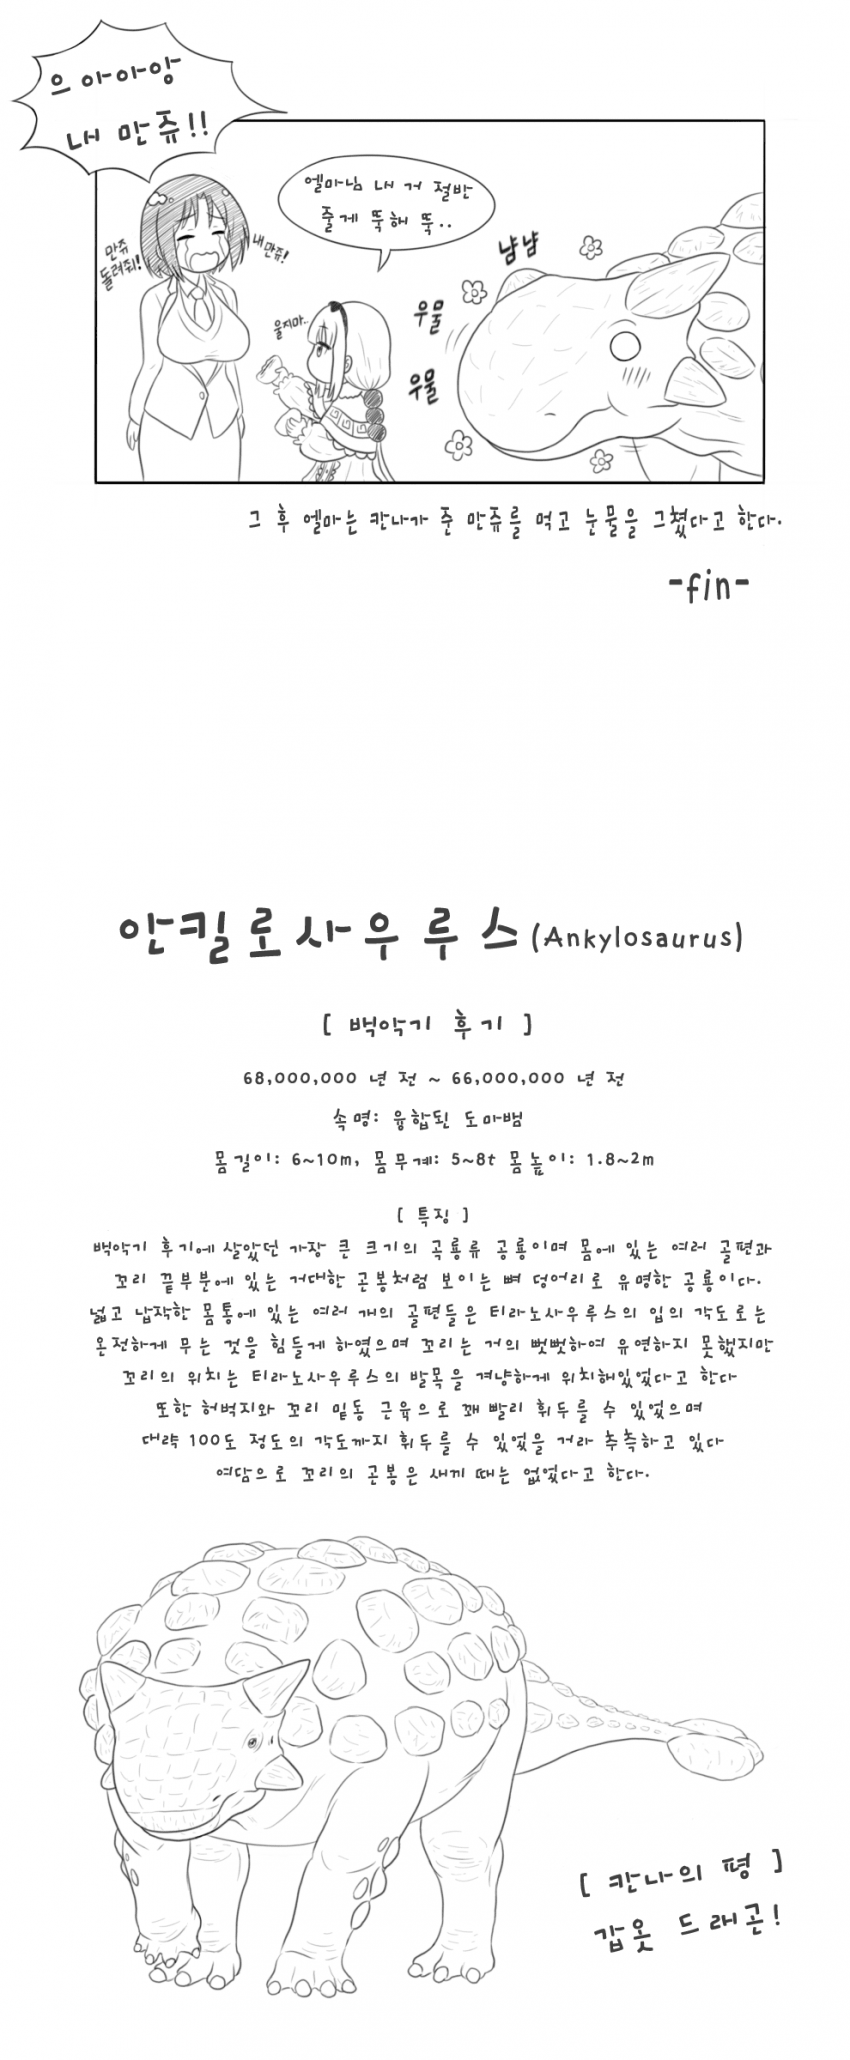 으 아아앙
내 만쥬!!
만쥬
돌려줘!
내만쥬!
엘마님 내 거 절반
줄게 뚝해 뚝..
울지마..
냠냠
우물
우물
그 후 엘마는 칸나가 준 만쥬를 먹고 눈물을 그쳤다고 한다.
-fin-
안킬로사우루스 (Ankylosaurus)
[ 백악기 후기 ]
68,000,000 년 전 ~ 66,000,000 년 전
속명: 융합된 도마뱀
몸길이: 6~10m, 몸무게: 5~8t 몸높이: 1.8~2m
[ 특징 ]
백악기 후기에 살았던 가장 큰 크기의 곡룡류 공룡이며 몸에 있는 여러 골편과
꼬리 끝부분에 있는 거대한 곤봉처럼 보이는 뼈 덩어리로 유명한 공룡이다.
넓고 납작한 몸통에 있는 여러 개의 골편들은 티라노사우루스의 입의 각도로는
온전하게 무는 것을 힘들게 하였으며 꼬리는 거의 뻣뻣하여 유연하지 못했지만
꼬리의 위치는 티라노사우루스의 발목을 겨냥하게 위치해있었다고 한다
또한 허벅지와 꼬리 밑동 근육으로 꽤 빨리 휘두를 수 있었으며
대략 100도 정도의 각도까지 휘두를 수 있었을 거라 추측하고 있다
여담으로 꼬리의 곤봉은 새끼 때는 없었다고 한다.
[ 칸나의 평 ]
갑옷 드래곤!